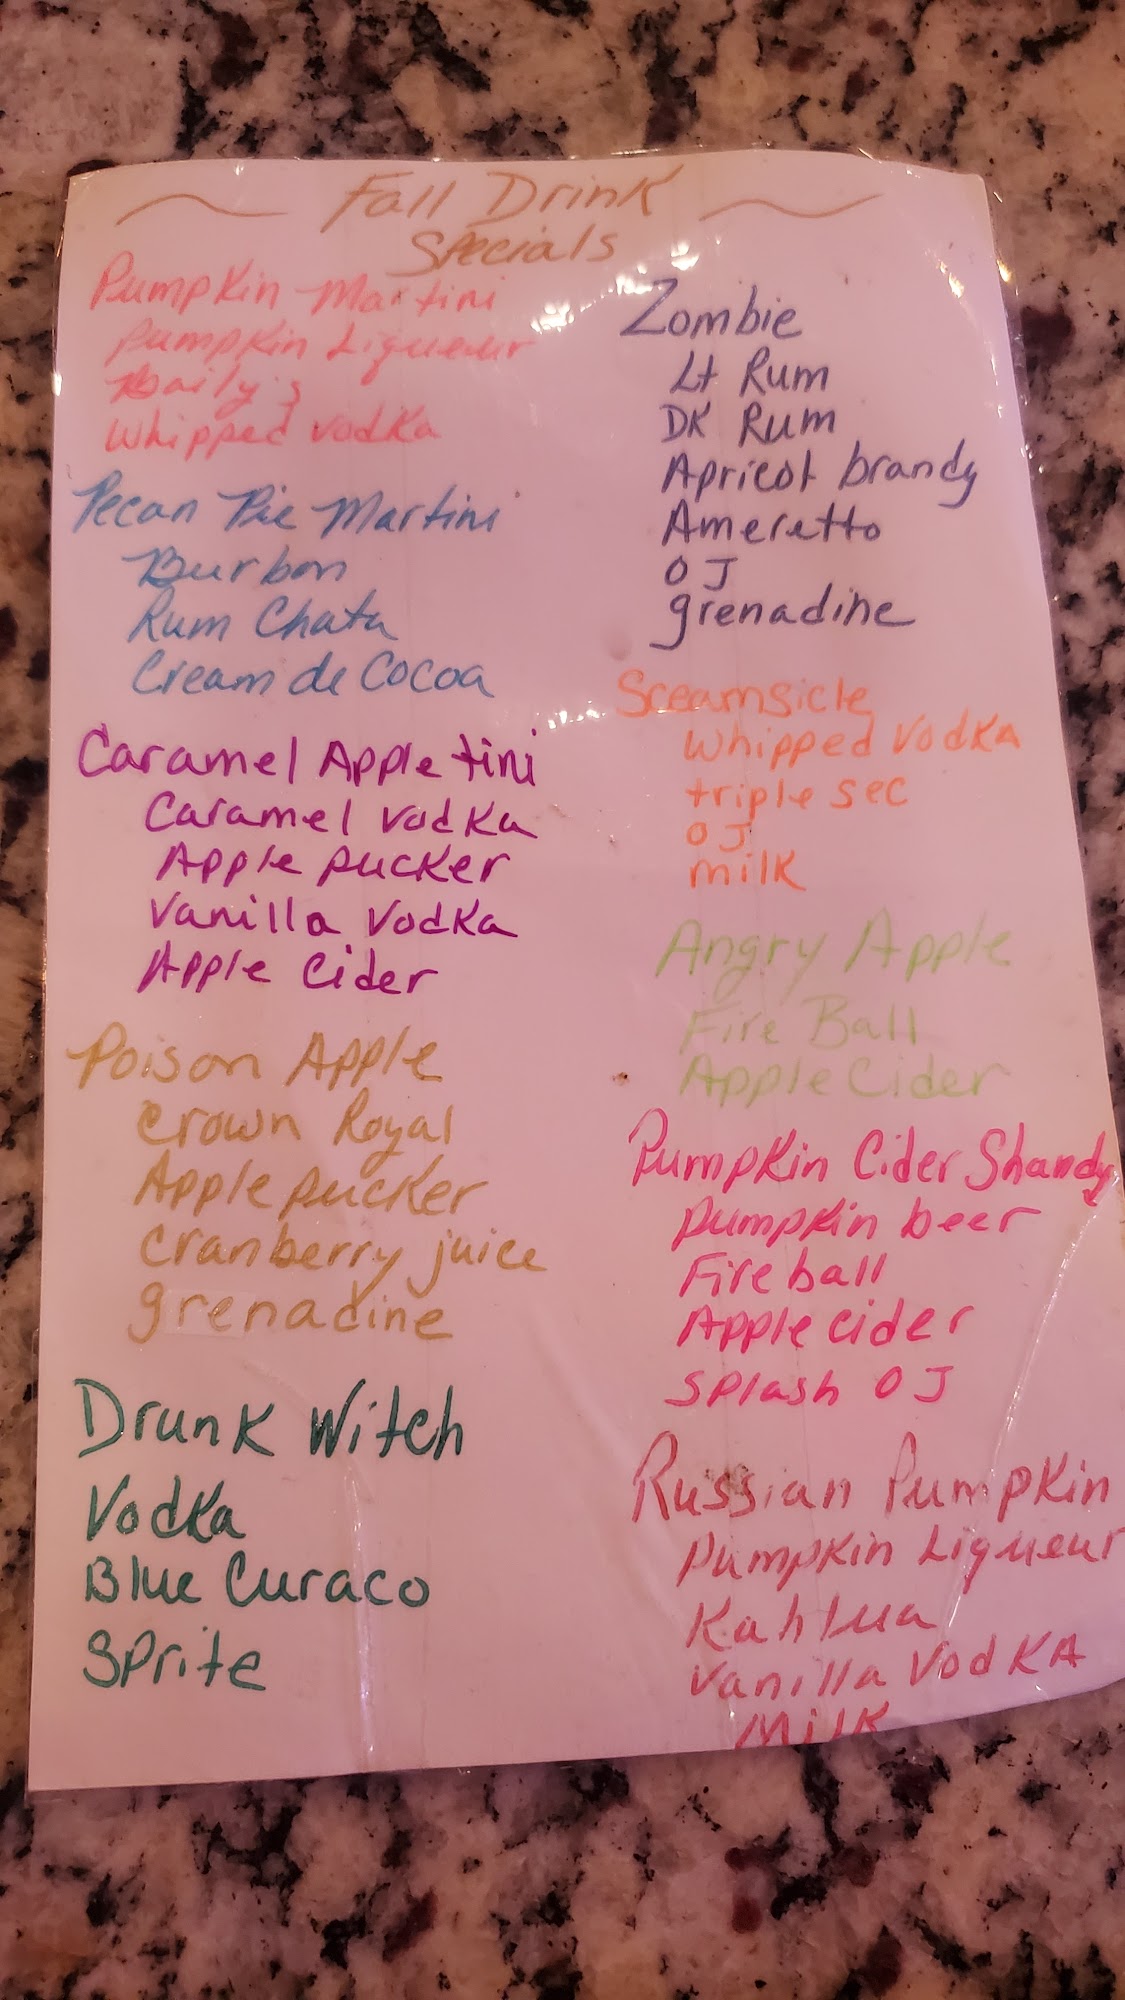 Fall Drink
Specials
Pumpkin Martini
Pumpkin Liqueur
Baily's
Whipped vodka
Pecan Pie Martini
Burbon
Rum Chata
Cream de Cocoa
Caramel Apple tini
Caramel vodka
Apple pucker
Vanilla Vodka
Apple Cider
Poison Apple
Crown Royal
Apple pucker
Cranberry juice
grenadine
Drunk Witch
Vodka
Blue Curaco
Sprite
Zombie
Lt Rum
DK Rum
Apricot brandy
Ameretto
OJ
grenadine
Sceamsicle
Whipped Vodka
triple sec
OJ
milk
Angry Apple
Fire Ball
Apple Cider
Pumpkin Cider Shandy
pumpkin beer
Fireball
Apple cider
Splash OJ
Russian Pumpkin
Pumpkin Liqueur
Kahlua
Vanilla VodKA
Milk